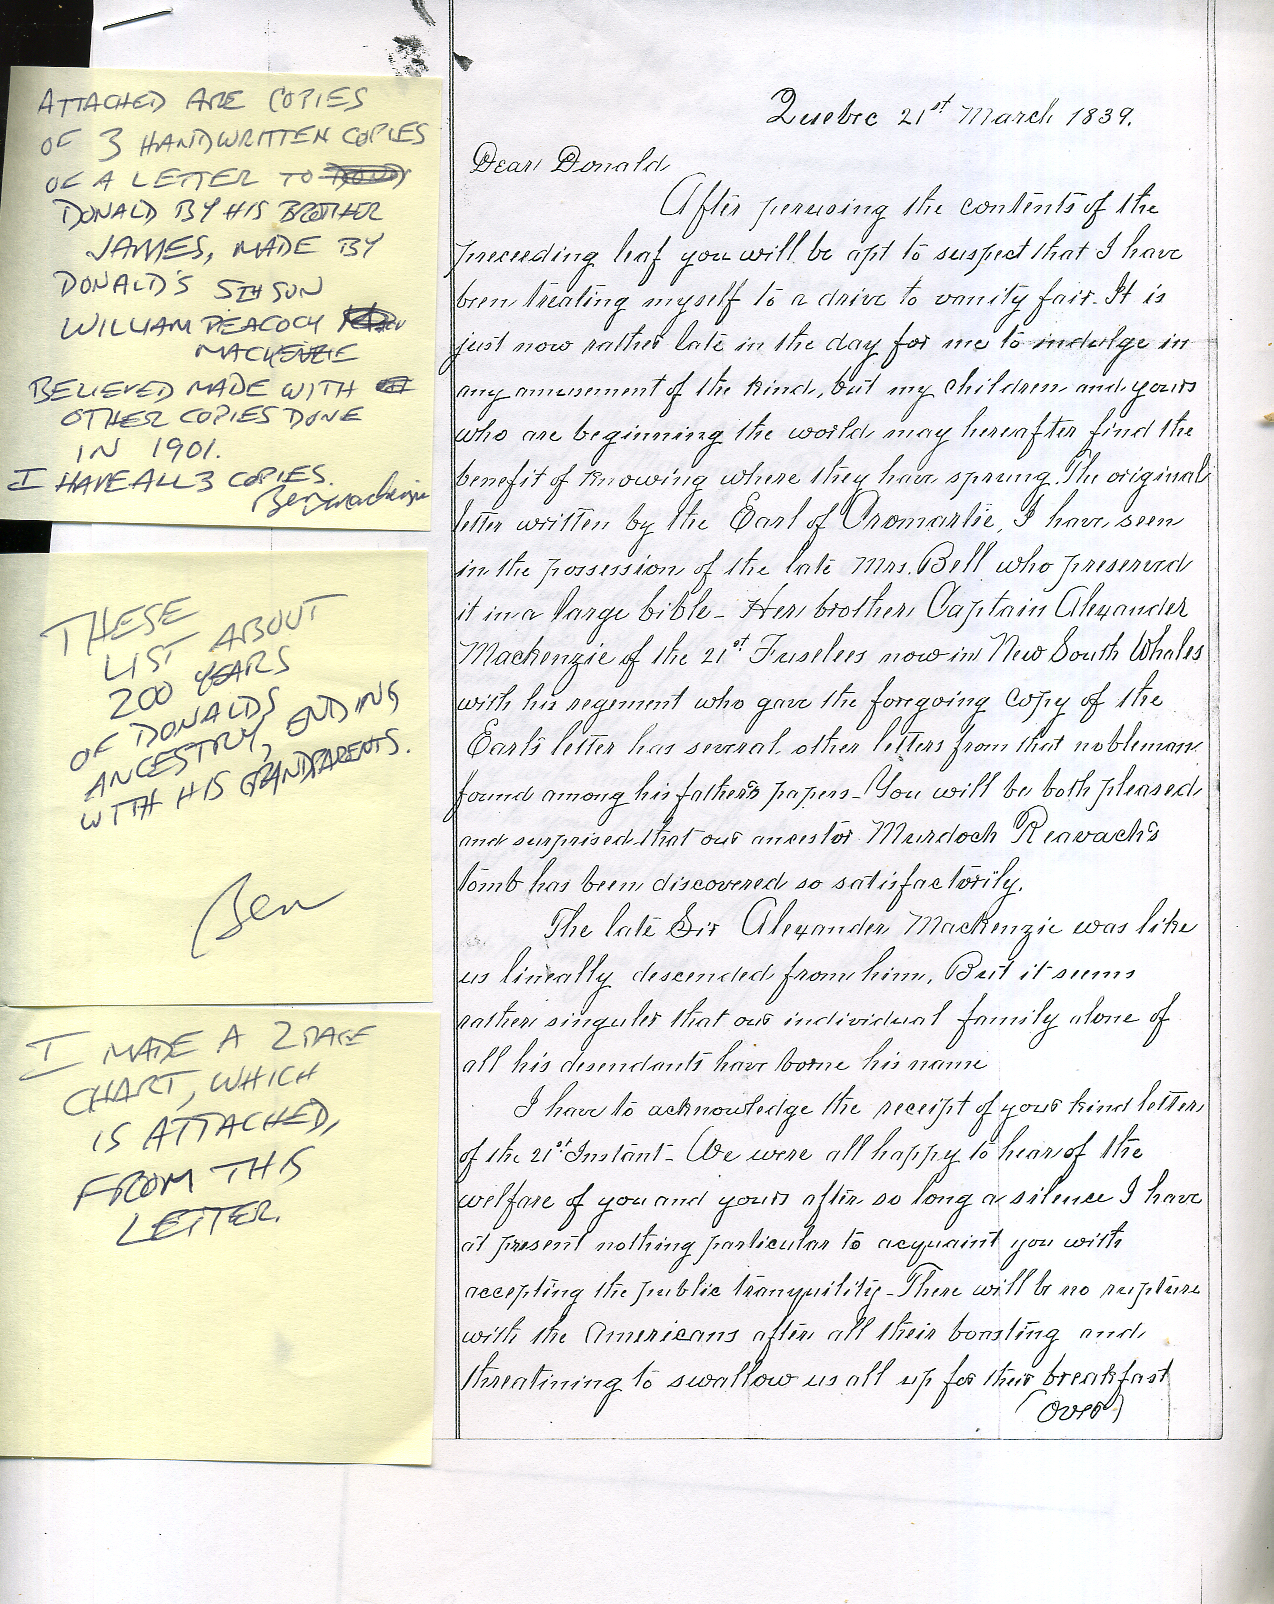 ATTACHED ARE COPIES
OF 3 HANDWRITTEN COPIES
OF A LETTER TO
DONALD BY HIS BROTHER
JAMES, MADE BY
DONALD'S 5TH SON
WILLIAM PEACOCK
MACKENZIE
BELIEVED MADE WITH
OTHER COPIES DONE
IN 1901.
I HAVE ALL 3 COPIES.
Ben Mackenzie
THESE
LIST ABOUT
200 YEARS
OF DONALDS
ANCESTRY, ENDING
WITH HIS GRANDPARENTS.
Ben
I MADE A 2 PAGE
CHART, WHICH
IS ATTACHED,
FROM THIS
LETTER.
Quebec 21st March 1839.
Dear Donald
After perusing the contents of the
preceeding leaf you will be apt to suspect that I have
been treating myself to a drive to vanity fair. It is
just now rather late in the day for me to indulge in
any amusement of the kind, but my children and yours
who are beginning the world may hereafter find the
benefit of knowing where they have sprung. The original
letter written by the Earl of Cromartie, I have seen
in the possession of the late Mrs. Bell who preserved
it in a large bible - Her brother Captain Alexander
Mackenzie of the 21st Fuselees now in New South Whales
with his regement who gave the foregoing copy of the
Earl's letter has several other letters from that nobleman
found among his father's papers - You will be both pleased
and surprised that our ancestor Murdoch Reavach's
tomb has been discovered so satisfactorily.
The late Sir Alexander Mackenzie was like
us lineally descended from him, But it seems
rather singuler that our individual family alone of
all his desendants have borne his name
I have to acknowledge the receipt of your kind letter
of the 21st Instant - We were all happy to hear of the
welfare of you and yours after so long a silence I have
at present nothing particular to acquaint you with
accepting the public tranquility - There will be no rupture
with the Americans after all their boasting and
threatining to swallow us all up for their breakfast
(Over)